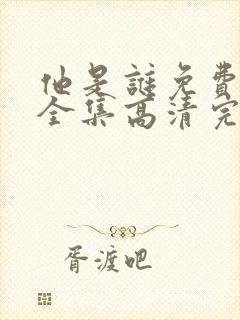 他是谜免费
全集高清完
胥渡吧